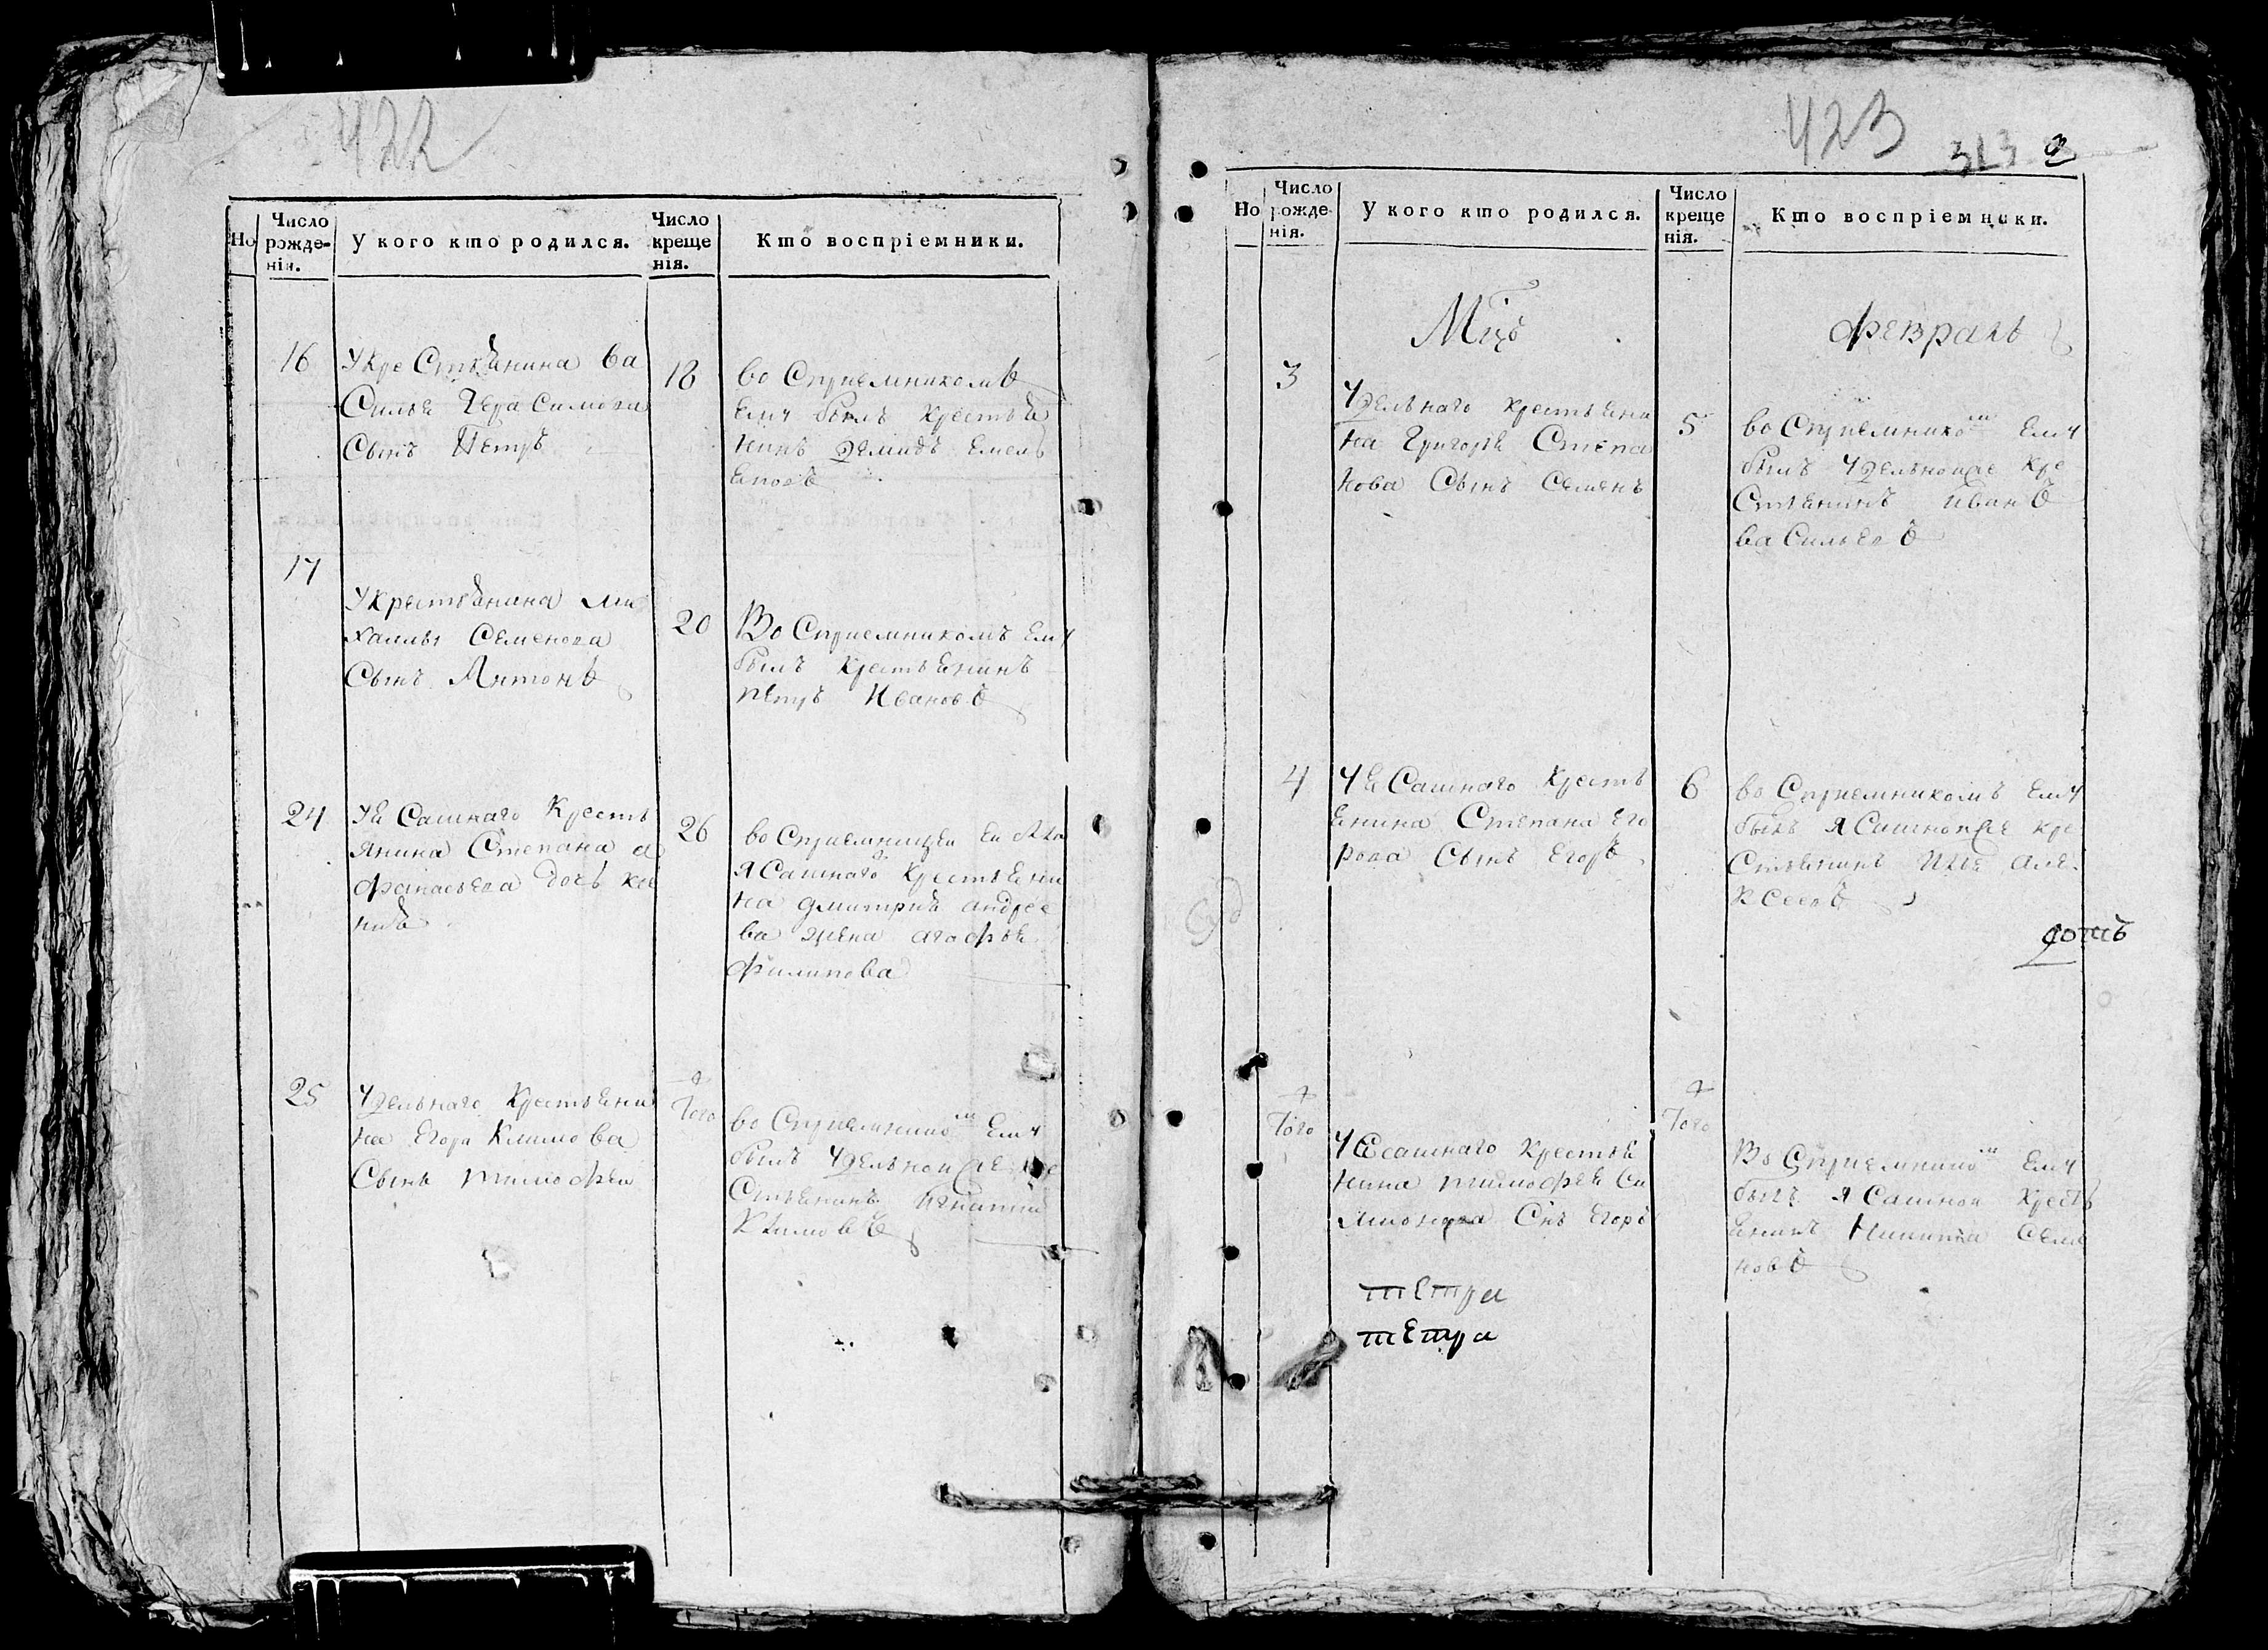 422
Но
Число рожде-нія.
У кого кто родился.
Число креще нія.
Кто воспріемники.
16
У кре Стьянина ва
Силья Гера Симова
Сынъ Петръ
18
во Сприемникомъ
ему былъ крестья
нинъ Демидъ Емель
еновъ
17
У крестьянина ми
хаилы Семенова
Сынъ Антонъ
20
Во Сприемникомъ ему
былъ крестьенинъ
петръ Ивановъ
24
У е Сашнаго Кресть
янина Степана а
фанасьева дочь кс
ния
26
во Сприемницеи еи была
я Сашнаго крестьени
на дмитрия андрее
ва жена агофье
филипова
25
Уделнаго Крестьени
на Егора Климова
Сынъ тимофеи
Того
во Сприемнико м ему
былъ Уделнои же кре
Стьенинъ Игнатий
Климовъ
423
313
Но
Число рожде нія.
У кого кто родился.
Число креще нія.
Кто воспріемники.
Мцъ
февраль
3
Уделнаго крестьени
на Григорье Степа
нова Сынъ Семенъ
5
во Сприемнико м ему
былъ Уделнои же кре
Стьенинъ Иванъ
ва Сильевъ
4
У е Сашнаго Кресть
енина Степана Его
рова Сынъ Егоръ
6
во Сприемникомъ ему
былъ я Сашнои же кре
Стьенинъ Илье але
ксеевъ
Того
У есашнаго Крестье
нина тимофее Си
мионова Снъ Егоръ
Того
Во Сприемнико м ему
былъ я Сашнои Кресть
енинъ Никита Семе
новъ
тетра
тетра